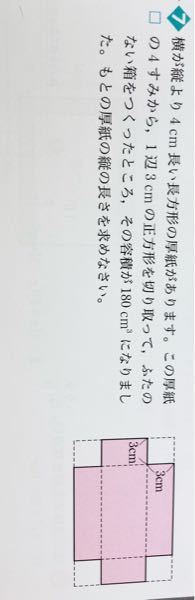 7 横が縦より4cm長い長方形の厚紙があります。この厚紙
の4すみから，1辺3cmの正方形を切り取って，ふたの
ない箱をつくったところ，その容積が180cm³になりまし
た。もとの厚紙の縦の長さを求めなさい。
3cm
3cm